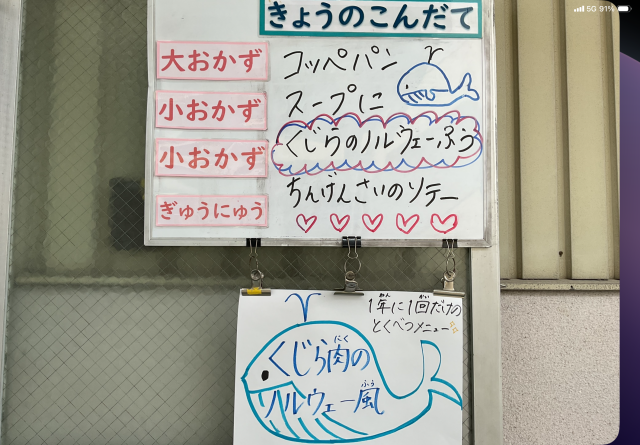 5G 91%
きょうのこんだて
大おかず コッペパン
小おかず スープに
くじらのノルウェーふう
小おかず
ちんげんさいのソテー
ぎゅうにゅう
1年に1回だけの
ねん かい
とくべつメニュー
くじら肉の
にく
ノルウェー風
ふう